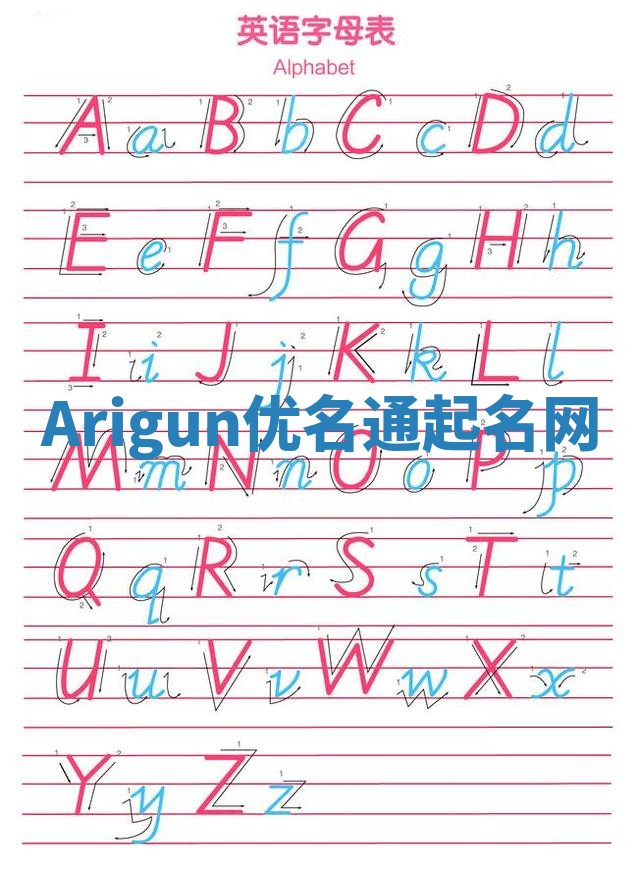 英语字母表
Alphabet
A a B b C c D d
E e F f G g H h
I i J j K k L l
Arigun优名通起名网
M m N n O o P p
Q q R r S s T t
U u V v W w X x
Y y Z z